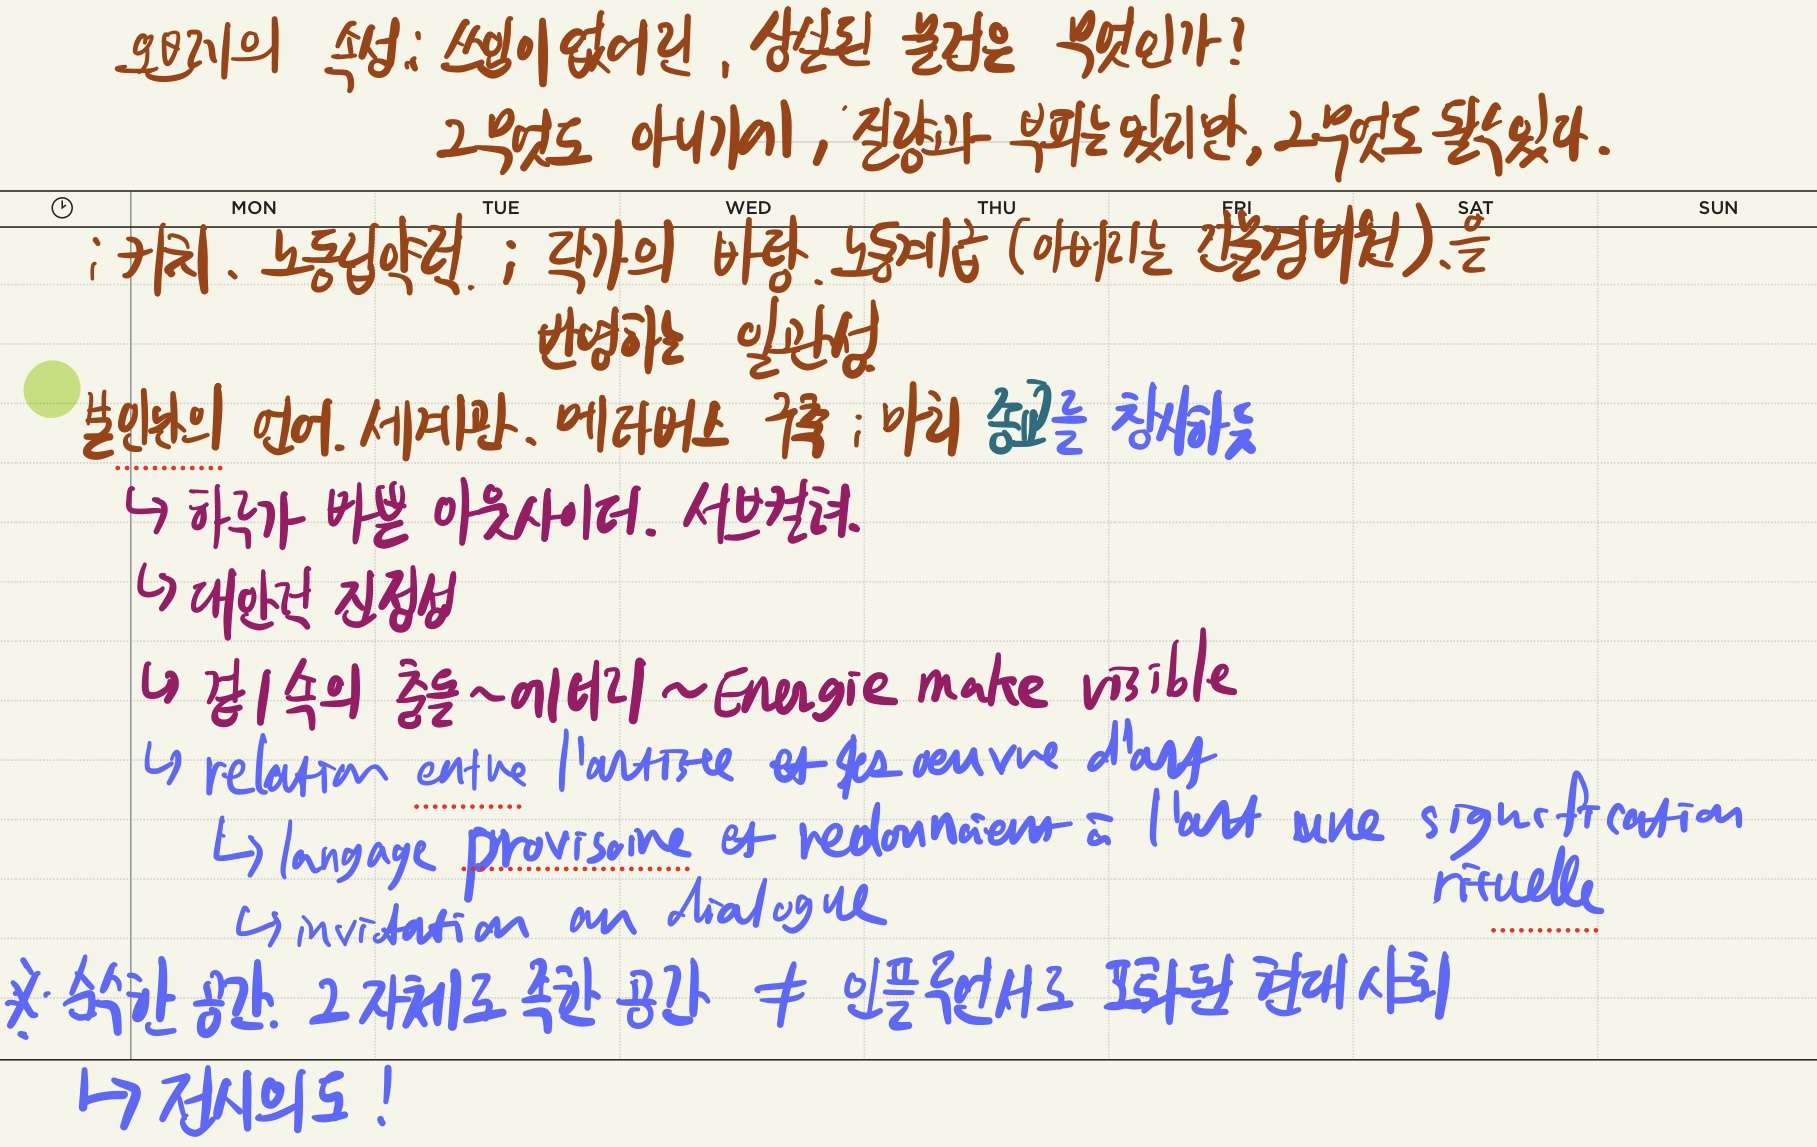 오브제의 속성: 쓰임이 없어진, 상실된 물건은 무엇인가?
그 무엇도 아니기에, 질량과 부피는 있지만, 그 무엇도 될 수 있다.
MON TUE WED THU FRI SAT SUN
: 가치、노동집약적. ; 작가의 바탕. 노동계급 (아버지는 건물경비원).을
반영하는 일관성
본인만의 언어. 세계관、메타버스 구축 ; 마치 종교를 창시하듯
↳ 하루가 바쁜 아웃사이더. 서브컬쳐.
↳ 대안적 진정성
↳ 겹겹 속의 충돌 ~ 에너지 ~ Energie make visible
↳ relation entre l'artiste et ses oeuvre d'art
↳ langage provisoire et redonnaient à l'art une signification
rituelle
↳ invitation au dialogue
※. 숙속한 공간. 그 자체로 족한 공간 ≠ 인플루언서로 포화된 현대 사회
↳ 전시의도!